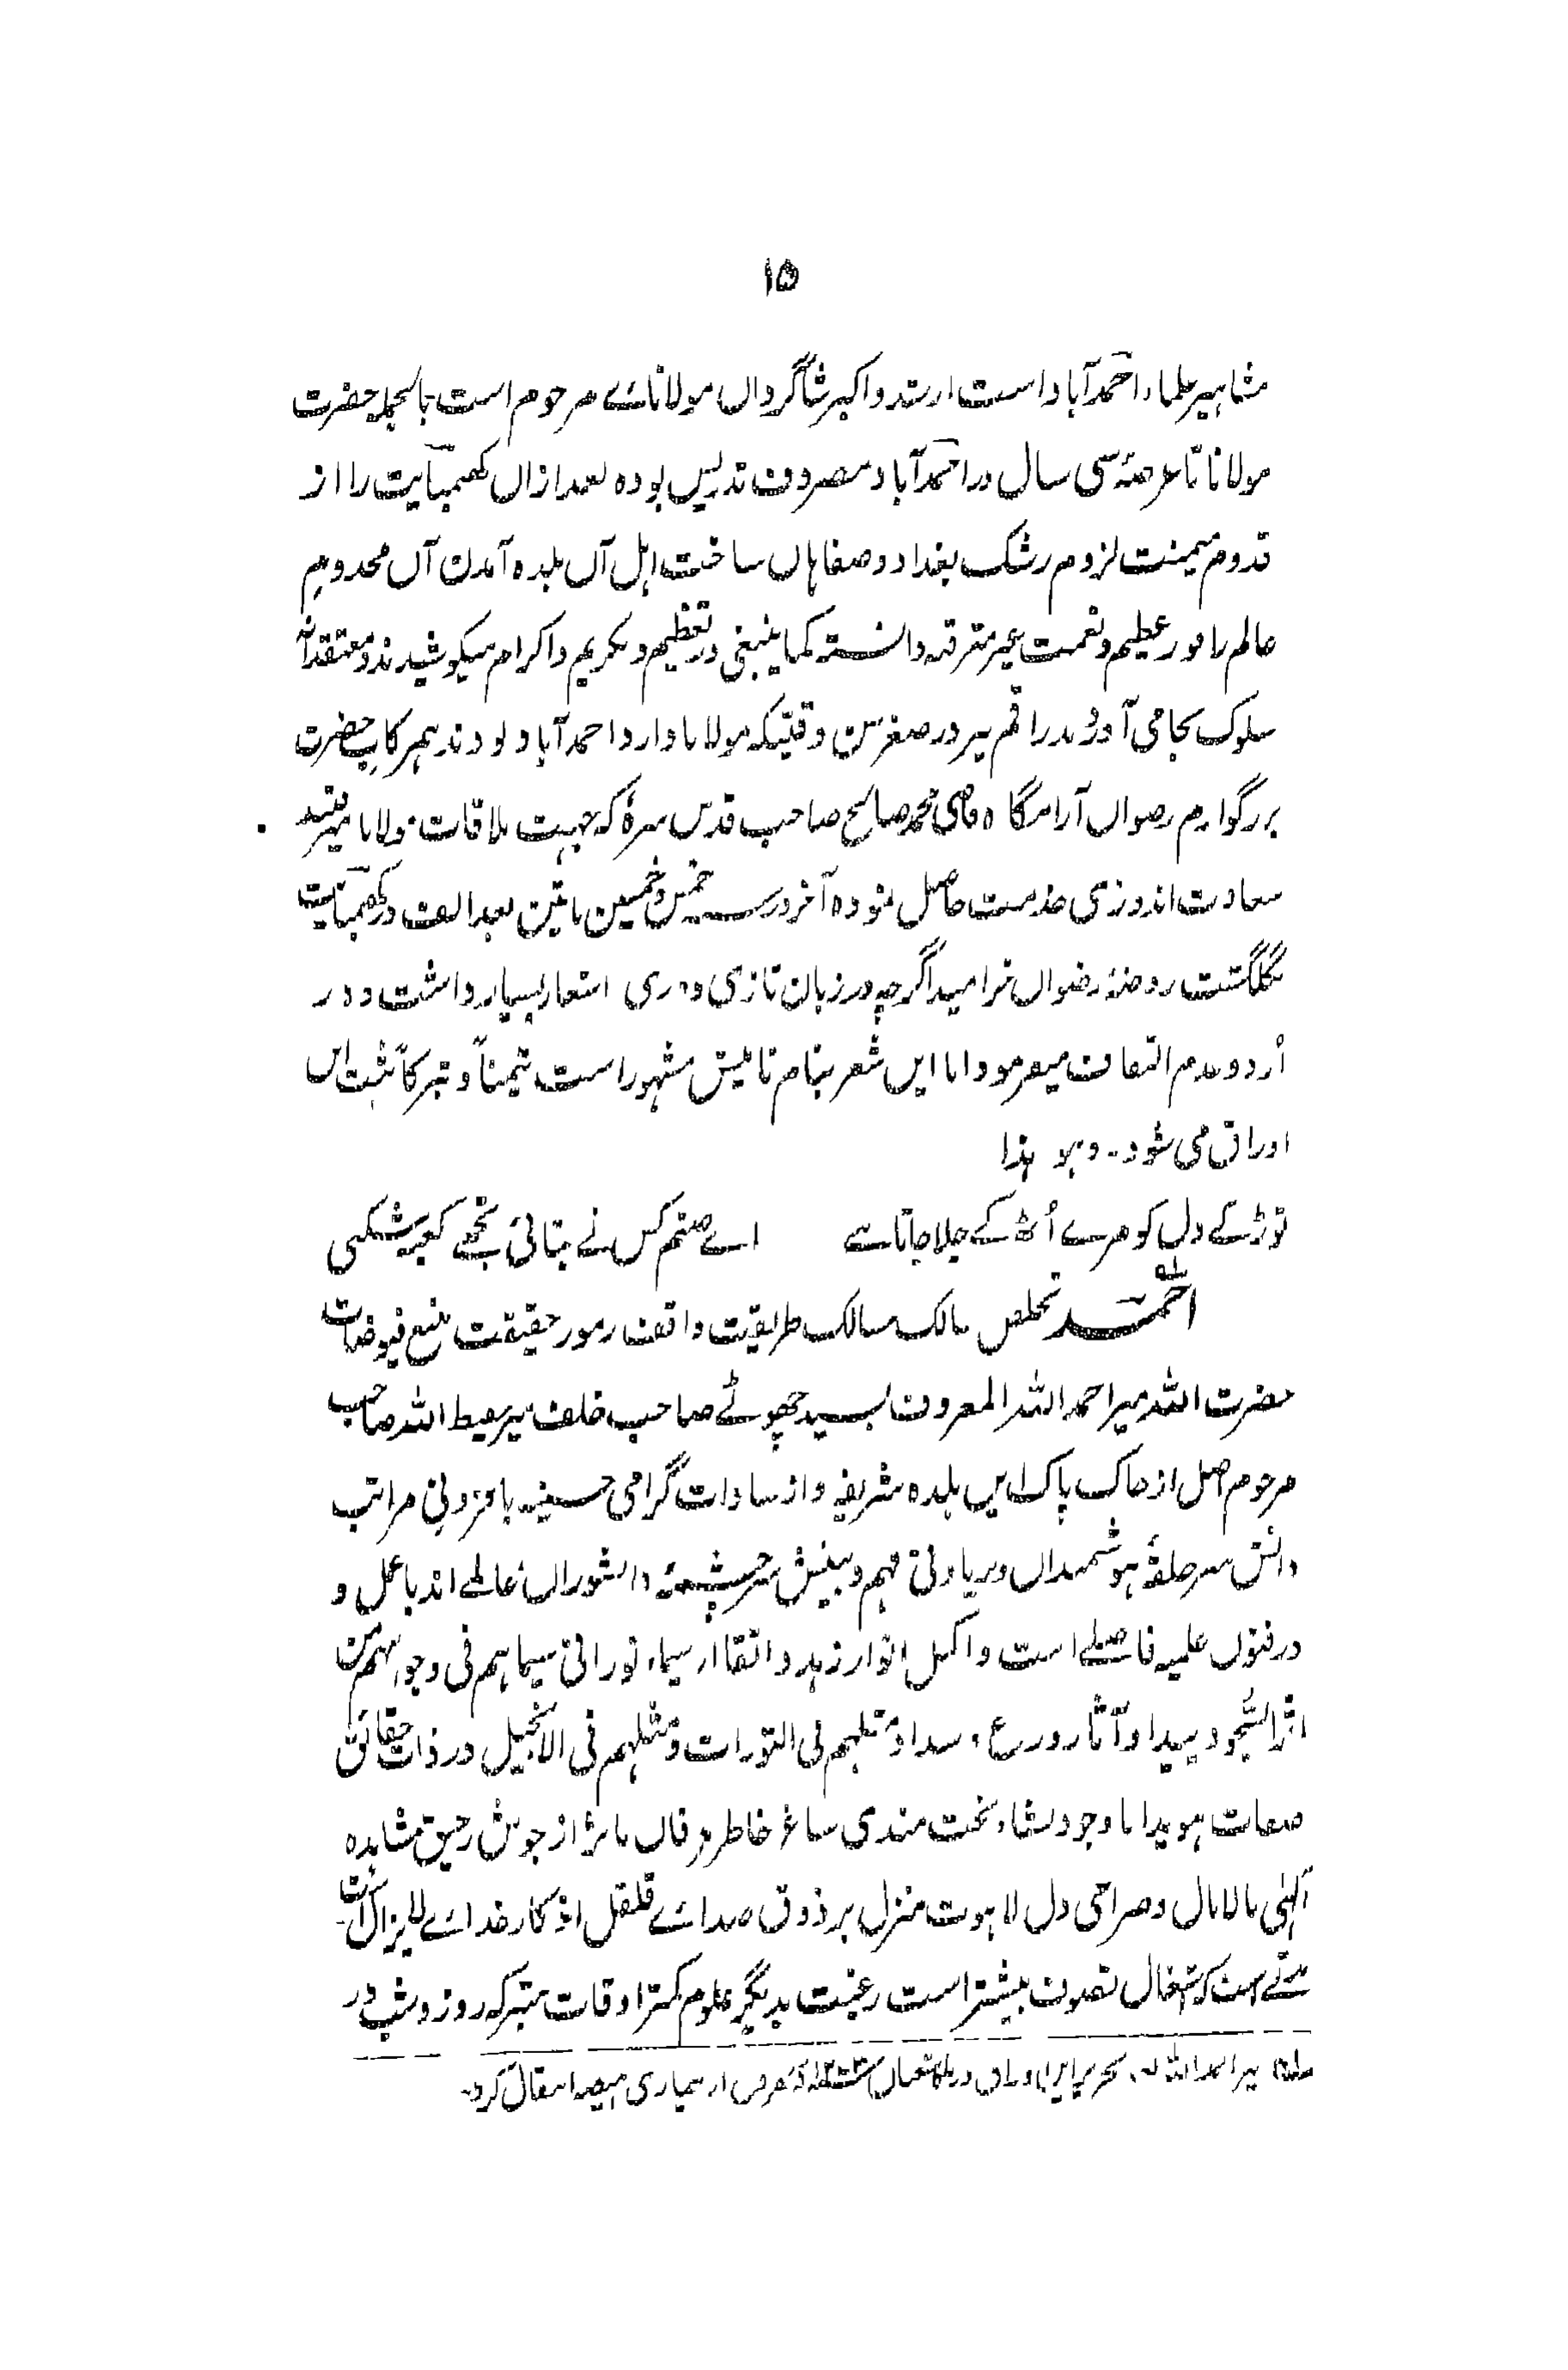 ۱۵
مشاہیر علماء احمدآباد است ارشد و اکبر شاگردان مولانائے مرحوم است بالجملہ حضرت
مولانا تا عرصۂ سی سال در احمدآباد مصروف تدریس بوده بعد ازاں کھمبایت را از
قدوم میمنت لزوم رشک بغداد و صفاہاں ساخت اہل آں بلده آمدن آں مخدوم
عالم را فوز عظیم و نعمت غیر مترقبہ دانستہ کما ینبغی در تعظیم و تکریم و اکرام میکوشیدند و معتقدانہ
سلوک بجا می آوردند راقم نیز در صغر سن وقتیکہ مولانا وارد احمدآباد بودند ہمرکاب حضرت
بزرگوارم رضواں آرامگاه قاضی محمد صالح صاحب قدس سرہٗ کہ جہت ملاقات مولانا میرفتند
سعادت اندوزی خدمت حاصل نموده آخر در سنہ خمس و خمسین مأتین بعد الف در کھمبایت
بگلگشت روضۂ رضواں خرامید اگرچہ در زبان تازی و دری اشعار بسیار داشت و در
اُردو عدم التفات میفرمود اما ایں شعر بنام نامیش مشہور است تیمناً و تبرکاً ثبت ایں
اوراق می شود۔ وہو ہذا
توڑ کے دل کو مرے اُٹھ کے چلا جاتا ہے اے صنم کس نے بتائی تجھے کعبہ شکنی
احمد تخلص سالک مسالک طریقت واقف رموز حقیقت منبع فیوضات
حضرت اللہ میر احمد اللہ المعروف بسید چھوٹے صاحب خلف میر عیط اللہ صاحب
مرحوم اصل از خاک پاک ایں بلده شریفہ و از سادات گرامی حسینیہ بافزونی مراتب
دانش سر حلقۂ ہوشمنداں و بریادتی فہم و بینش سرچشمۂ دانشوراں عالمے اند باعمل و
در فنوں علمیہ فاضلے است و اکمل انوار زہد و اتقا از سیماء نورانی سیماہم فی وجوہہم من
اثر السجود پیدا و آثار ورع و سداد مثلہم فی التورات و مثلہم فی الانجیل در ذات حقائق
صفات ہویدا با وجود نشاء بخت مندی ساغر خاطر عرفاں مأثر از جوش رحیق مشاہده
الٰہی مالامال و صراحی دل لاہوت منزل بر ذوق صدائے قلقل اذکار خدائے لایزال است
مدتے ہست کہ اشتغال تصوف بیشتر است رغبت بدیگر علوم کمتر اوقات متبرکہ روز و شب در
میر احمد اللہ تحریر ایں اوراق در ماه شعبال عرض از بیماری ہیضہ انتقال کرد۔